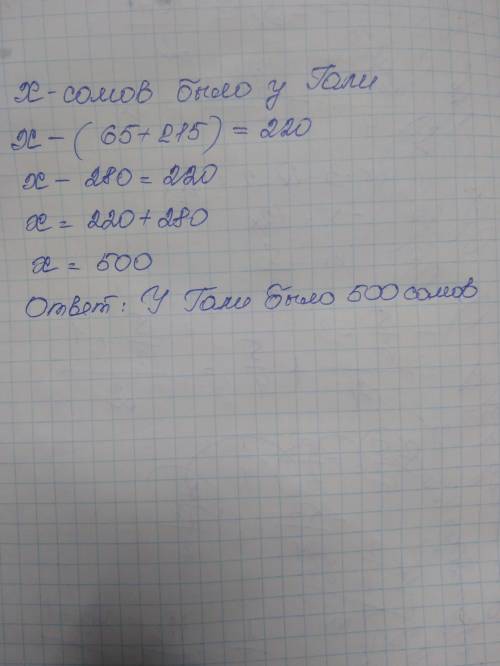 х - сомов было у Гали
х - ( 65 + 215 ) = 220
х - 280 = 220
х = 220 + 280
х = 500
Ответ : У Гали было 500 сомов